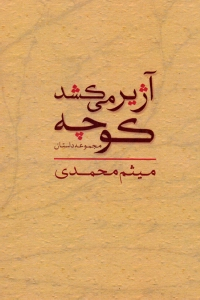 آژیر می‌کشد
کوچه
مجموعه داستان
میثم محمدی